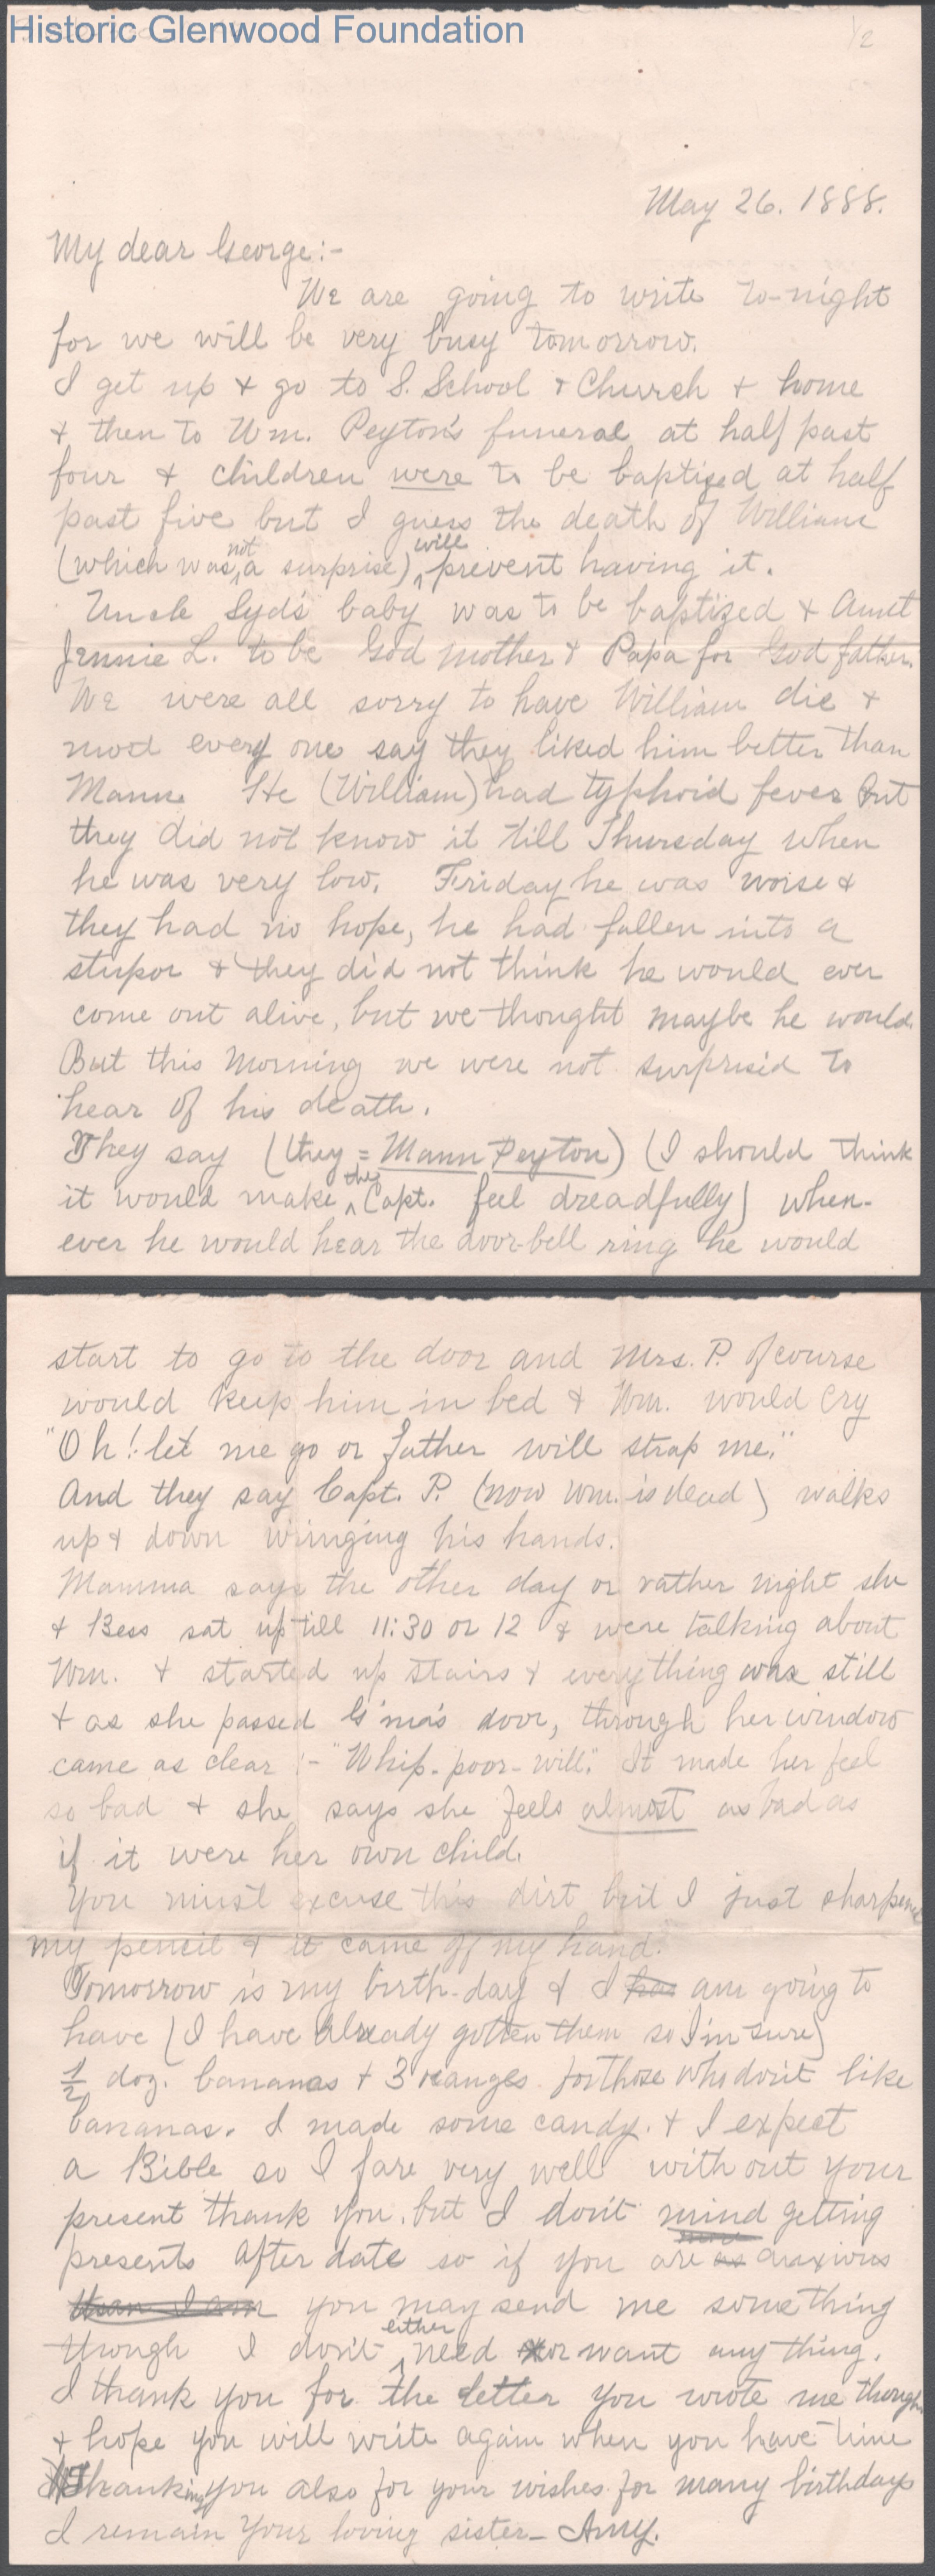 Historic Glenwood Foundation
1/2
May 26. 1888.
My dear George:-
We are going to write to-night
for we will be very busy tomorrow.
I get up & go to S. School & Church & home
& then to Wm. Peyton's funeral at half past
four & children were to be baptized at half
past five but I guess the death of William
(which was not a surprise) will prevent having it.
Uncle Syd's baby was to be baptized & Aunt
Jennie L. to be God mother & Papa for God father.
We were all sorry to have William die &
most every one say they liked him better than
Mann. He (William) had typhoid fever but
they did not know it till Thursday when
he was very low. Friday he was worse &
they had no hope, he had fallen into a
stupor & they did not think he would ever
come out alive, but we thought maybe he would.
But this morning we were not surprised to
hear of his death.
They say (they = Mann Peyton) (I should think
it would make the Capt. feel dreadfully) when-
ever he would hear the door-bell ring he would
start to go to the door and Mrs. P. of course
would keep him in bed & Wm. would cry
"Oh! let me go or father will strap me."
And they say Capt. P. (now Wm. is dead) walks
up & down wringing his hands.
Mamma says the other day or rather night she
& Bess sat up till 11:30 or 12 & were talking about
Wm. & started up stairs & everything was still
& as she passed G'ma's door, through her window
came as clear :- "Whip-poor-will." It made her feel
so bad & she says she feels almost as bad as
if it were her own child.
You must excuse this dirt but I just sharpened
my pencil & it came off my hand.
Tomorrow is my birth-day & I ha am going to
have (I have already gotten them so I'm sure)
1/2 doz. bananas & 3 oranges for those who don't like
bananas. I made some candy. & I expect
a Bible so I fare very well without your
present thank you, but I don't mind getting
presents after date so if you are as anxious
than I am you may send me something
though I don't either need or want any thing.
I thank you for the letter you wrote me though
& hope you will write again when you have time
Thanking you also for your wishes for many birthdays
I remain Your loving sister- Amy.